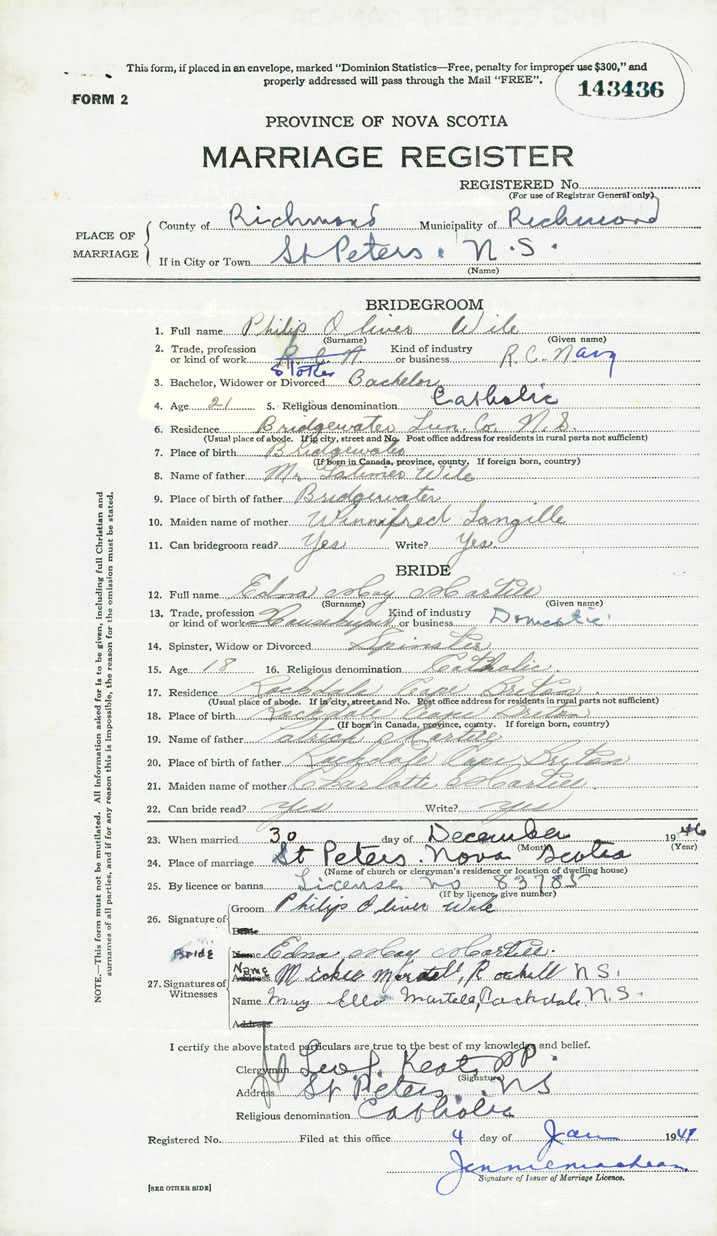 This form, if placed in an envelope, marked “Dominion Statistics—Free, penalty for improper use $300,” and
properly addressed will pass through the Mail “FREE”.
143436
FORM 2
PROVINCE OF NOVA SCOTIA
MARRIAGE REGISTER
REGISTERED No.
(For use of Registrar General only)
PLACE OF MARRIAGE
County of Richmond Municipality of Richmond
If in City or Town St Peters, N.S.
(Name)
BRIDEGROOM
1. Full name Philip Oliver Wile
(Surname) (Given name)
2. Trade, profession or kind of work R C N Stoker Kind of industry or business R.C. Navy
3. Bachelor, Widower or Divorced Bachelor
4. Age 21 5. Religious denomination Catholic
6. Residence Bridgewater Lun. Co. N.S.
(Usual place of abode. If in city, street and No. Post office address for residents in rural parts not sufficient)
7. Place of birth Bridgewater
(If born in Canada, province, county. If foreign born, country)
8. Name of father Mr Wile
9. Place of birth of father Bridgewater
10. Maiden name of mother Winnifred Langille
11. Can bridegroom read? Yes Write? Yes.
BRIDE
12. Full name Edna May Martell
(Surname) (Given name)
13. Trade, profession or kind of work Kind of industry or business Domestic
14. Spinster, Widow or Divorced Spinster
15. Age 18 16. Religious denomination Catholic.
17. Residence Rockdale Cape Breton
(Usual place of abode. If in city, street and No. Post office address for residents in rural parts not sufficient)
18. Place of birth Rockdale Cape Breton
(If born in Canada, province, county. If foreign born, country)
19. Name of father Patrick Martell
20. Place of birth of father Rockdale Cape Breton
21. Maiden name of mother Charlotte Martell
22. Can bride read? yes Write? yes
23. When married 30 day of December 1946
(Month) (Year)
24. Place of marriage St Peters Nova Scotia
(Name of church or clergyman's residence or location of dwelling house)
25. By licence or banns License no 83785
(If by licence, give number)
26. Signature of
Groom Philip Oliver Wile
Bride
Bride Name Edna May Martell.
27. Signatures of Witnesses
Name Address Martell, N S.
Name Martell, Rockdale N.S.
Address
I certify the above stated particulars are true to the best of my knowledge and belief.
Clergyman Leo J. Keats PP.
(Signature)
Address St Peters. NS
Religious denomination Catholic
Registered No. Filed at this office 4 day of Jan 1947
Jennie MacLean
Signature of Issuer of Marriage Licence.
[SEE OTHER SIDE]
NOTE.—This form must not be mutilated. All information asked for is to be given, including full Christian and
surnames of all parties, and if for any reason this is impossible, the reason for the omission must be stated.